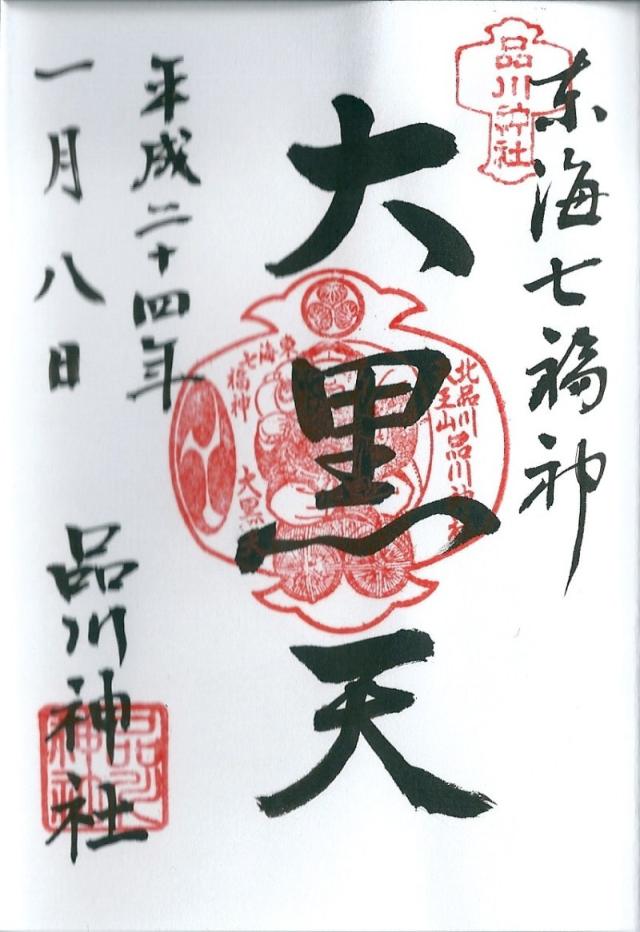 東海七福神
品川神社
大黒天
北品川品川神社
天王山
東海
七福神
大黒天
平成二十四年
一月八日
品川神社
品川神社